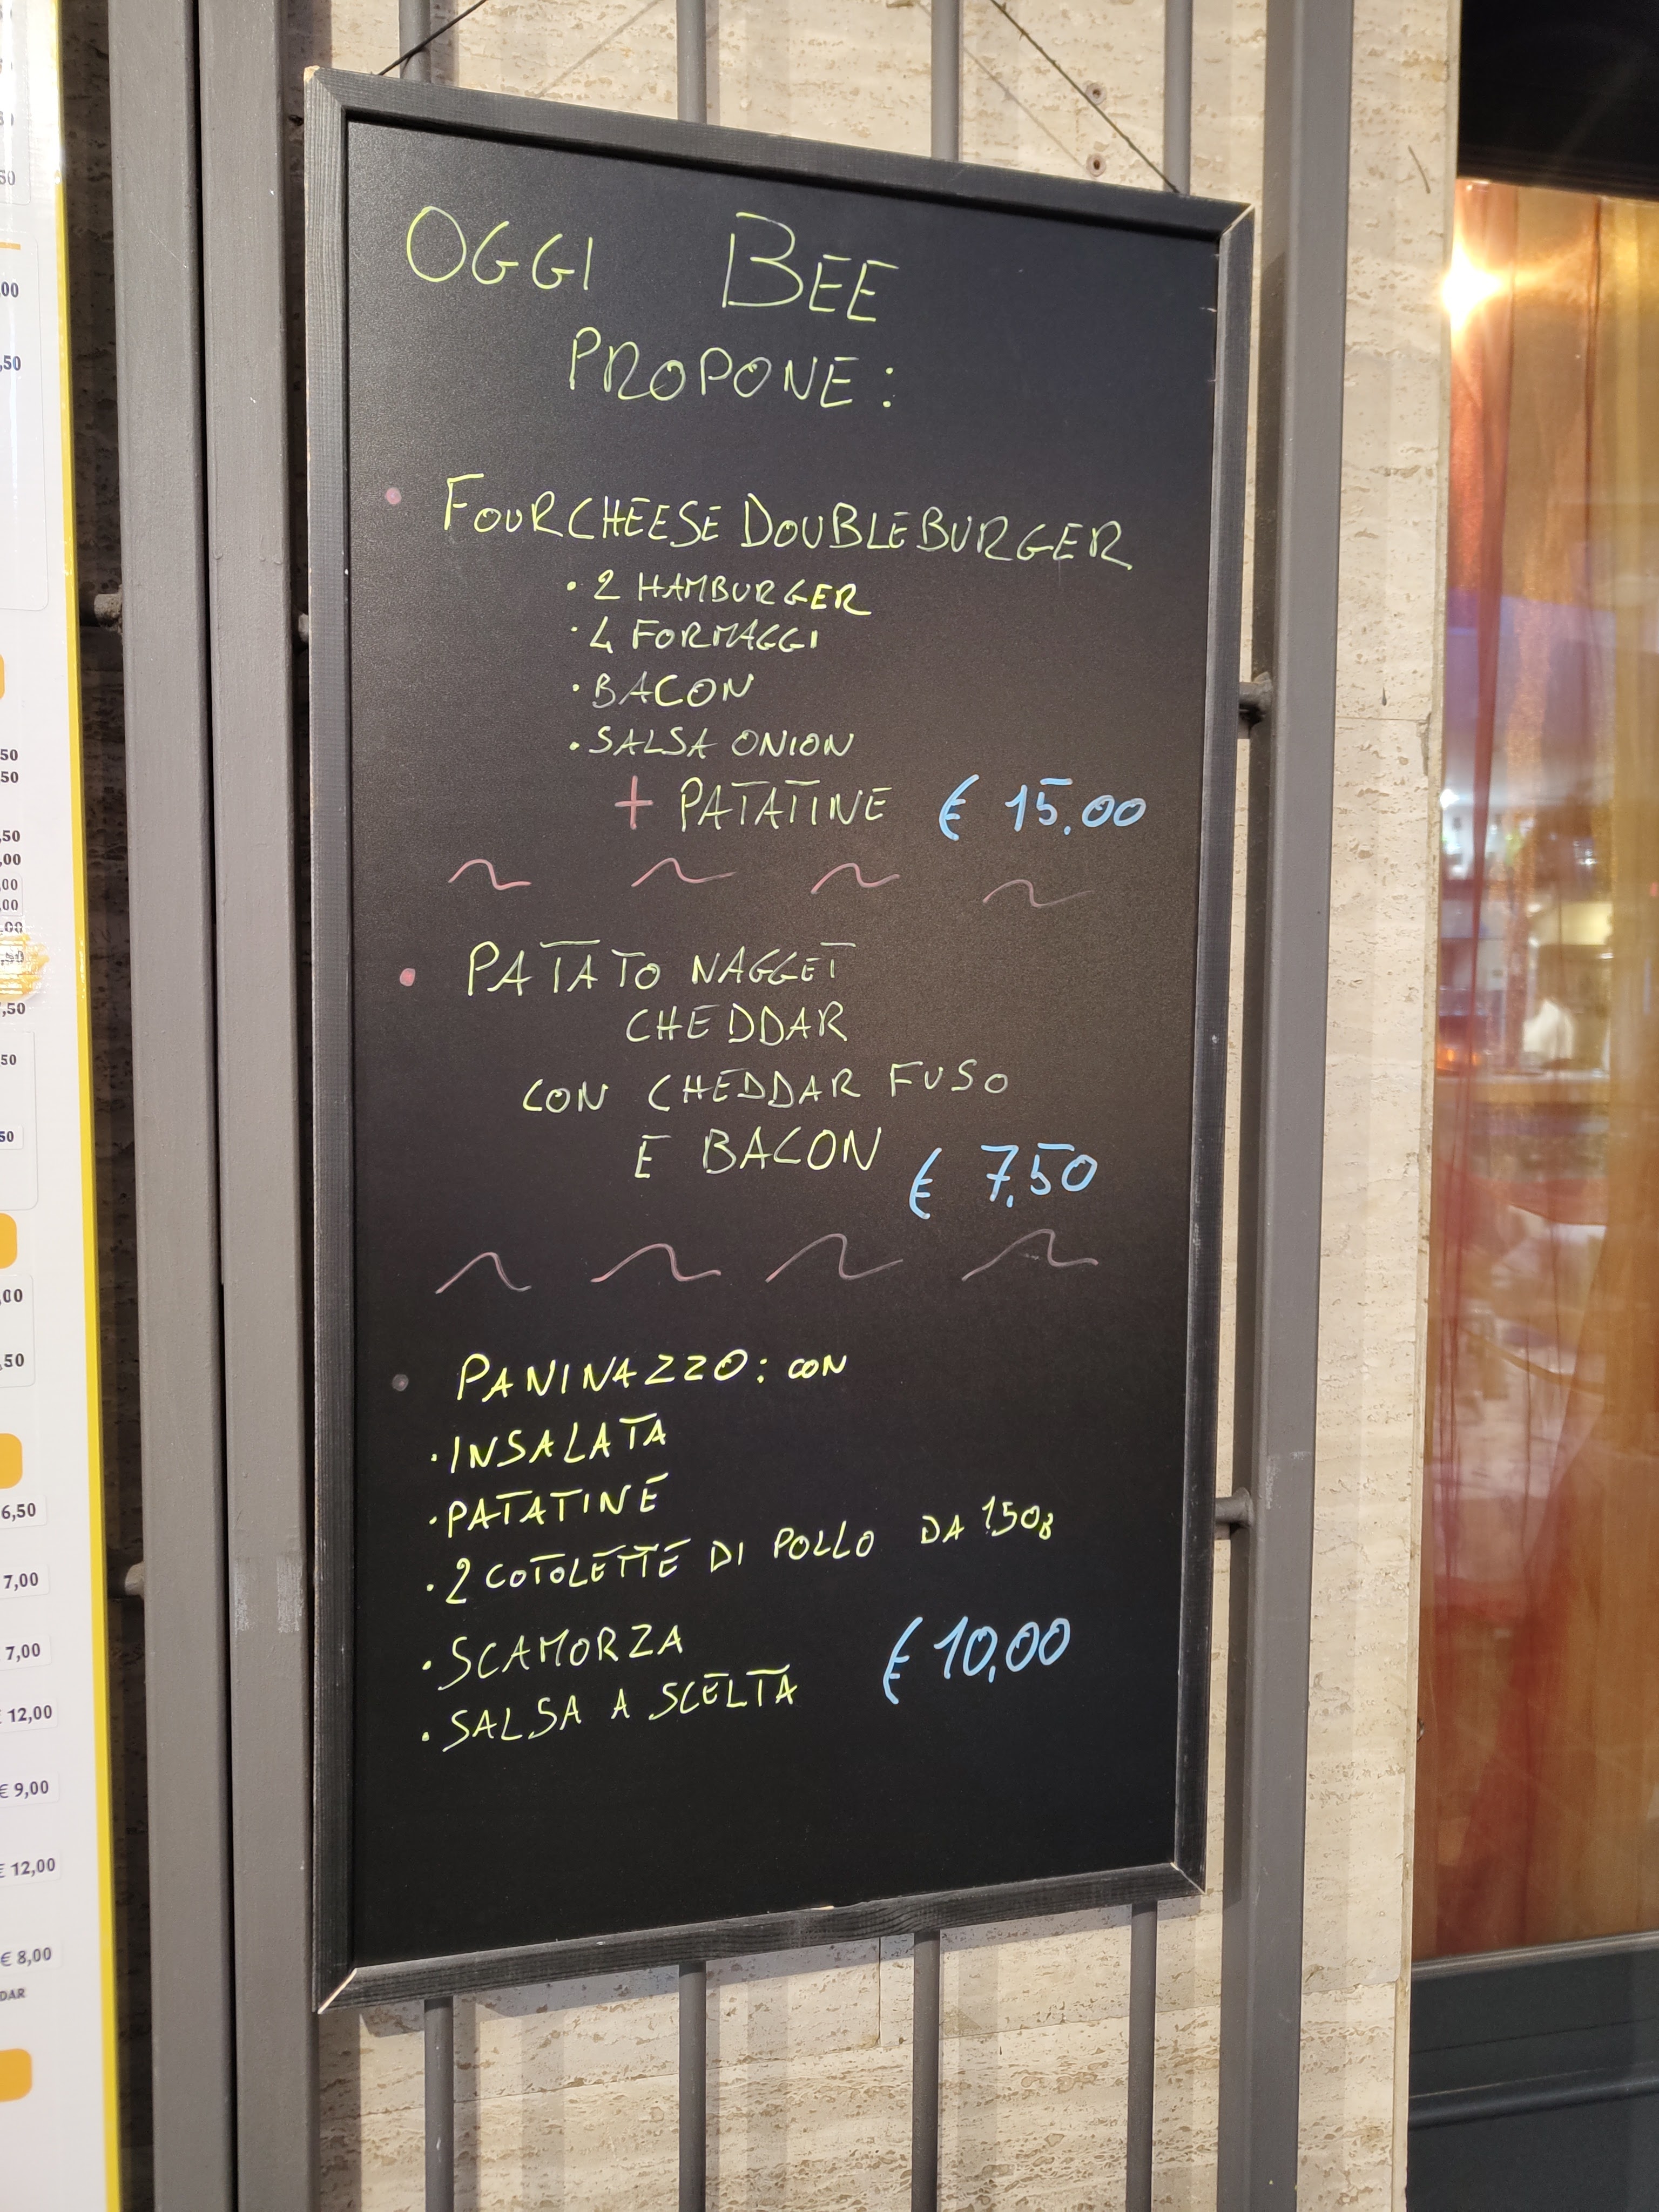 OGGI BEE
PROPONE:
• FOURCHEESE DOUBLEBURGER
• 2 HAMBURGER
• 4 FORMAGGI
• BACON
• SALSA ONION
+ PATATINE € 15,00
• PATATO NAGGET
CHEDDAR
CON CHEDDAR FUSO
E BACON € 7,50
• PANINAZZO: CON
• INSALATA
• PATATINE
• 2 COTOLETTE DI POLLO DA 150g
• SCAMORZA
€ 10,00
• SALSA A SCELTA
6,50
7,00
7,00
12,00
€ 9,00
€ 12,00
€ 8,00